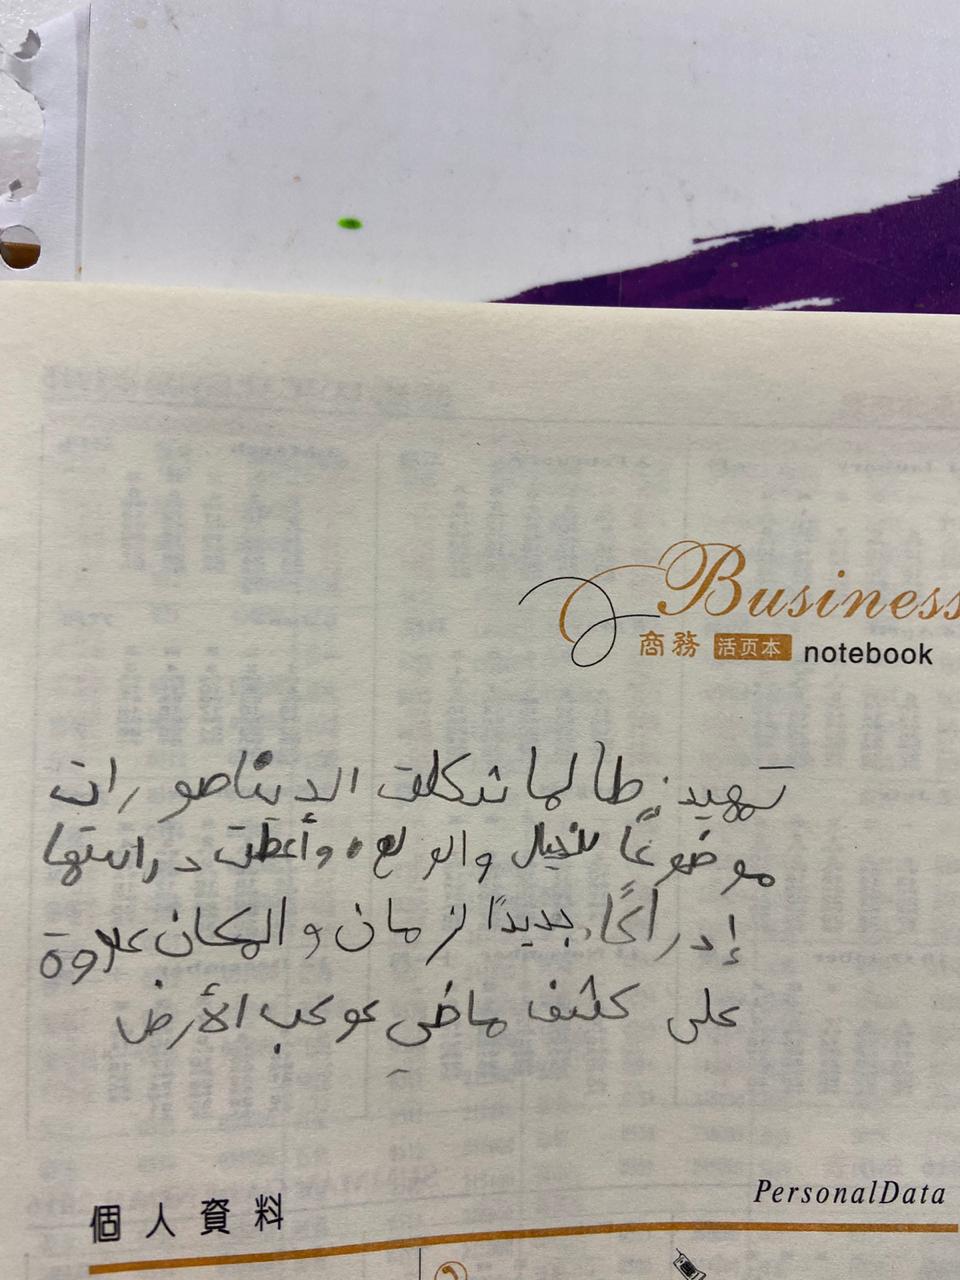 Business
商務 活页本 notebook
تمهيد: طالما شكلت الديناصورات
موضوعًا للخيال والولع، وأعطت دراستها
إدراكًا جديدًا لزمان والمكان علاوة
على كشف ماضي كوكب الأرض
PersonalData
個人資料